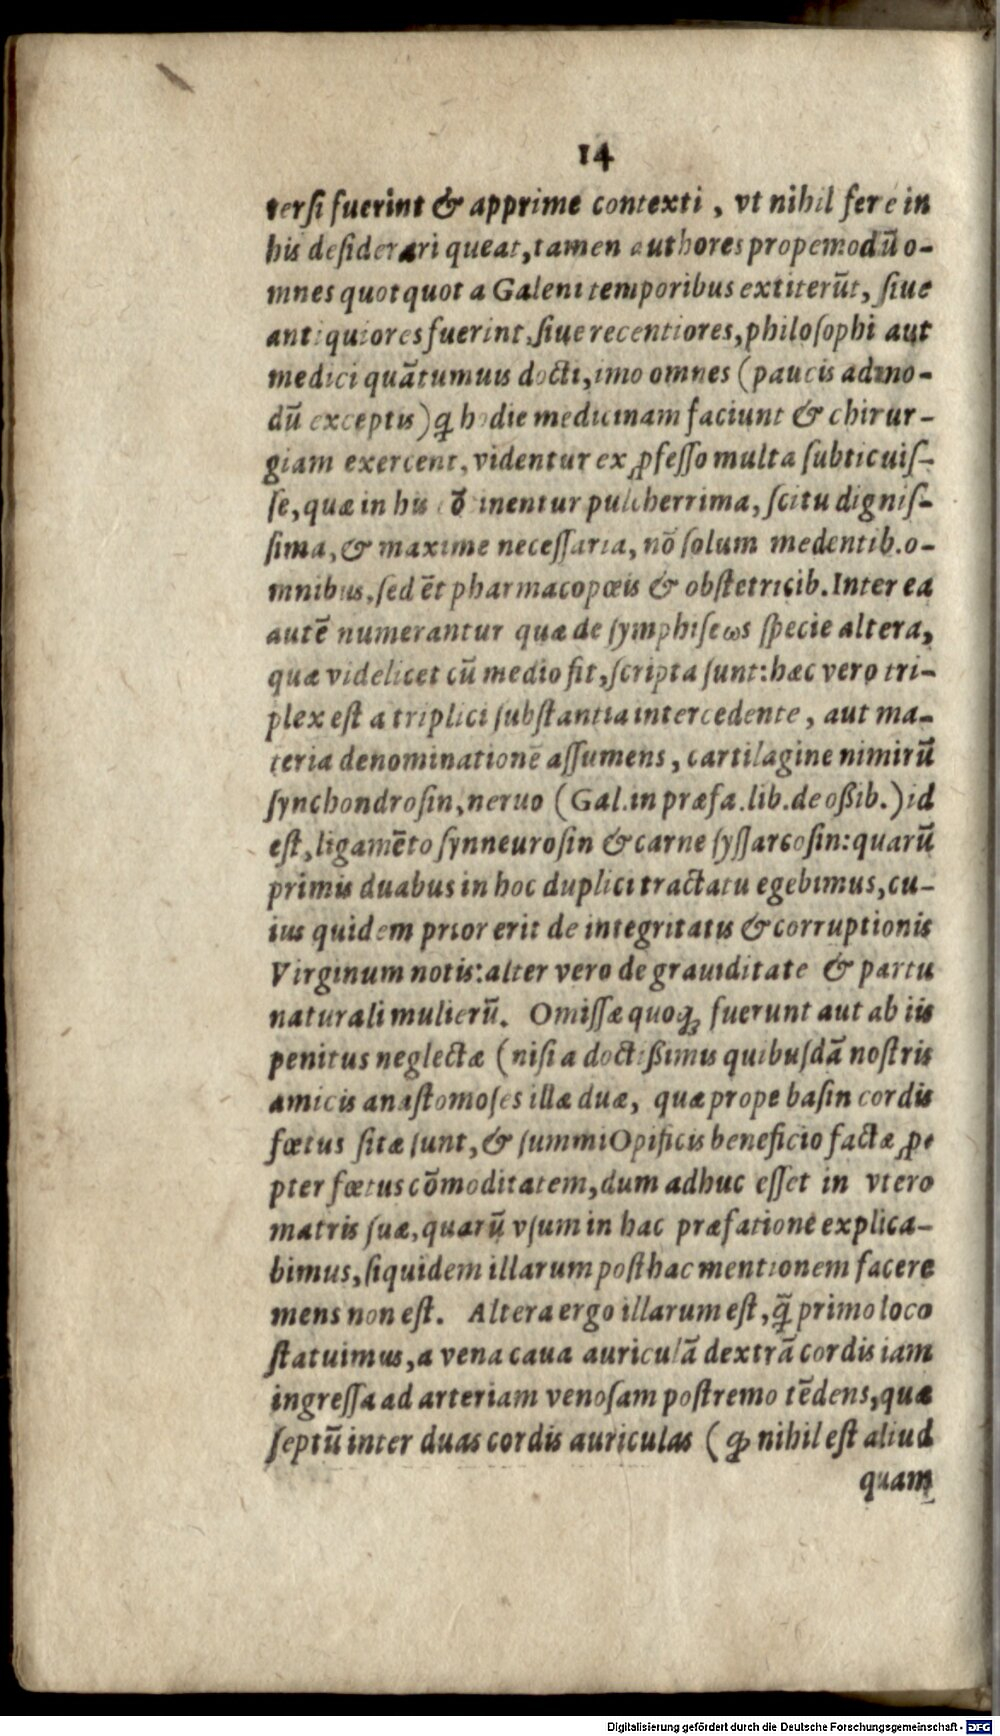 14
tersi fuerint & apprime contexti, vt nihil fere in
his desiderari queat, tamen authores propemodū o-
mnes quotquot a Galeni temporibus extiterūt, siue
antiquiores fuerint, siue recentiores, philosophi aut
medici quātumuis docti, imo omnes (paucis admo-
dū exceptis) q̃ hodie medicinam faciunt & chirur-
giam exercent, videntur ex ꝓfesso multa subticuis-
se, quæ in his ↄ̄tinentur pulcherrima, scitu dignis-
sima, & maxime necessaria, nō solum medentib. o-
mnibus, sed ēt pharmacopœis & obstetricib. Inter ea
autē numerantur quæ de symphiseωs specie altera,
quæ videlicet cū medio fit, scripta sunt: hæc vero tri-
plex est a triplici substantia intercedente, aut ma-
teria denominationē assumens, cartilagine nimirū
synchondrosin, neruo (Gal. in præfa. lib. de oßib.) id
est, ligamēto synneurosin & carne syssarcosin: quarū
primis duabus in hoc duplici tractatu egebimus, cu-
ius quidem prior erit de integritatis & corruptionis
Virginum notis: alter vero de grauiditate & partu
naturali mulierū. Omissæ quoqꝫ fuerunt aut ab iis
penitus neglectæ (nisi a doctißimis quibusdā nostris
amicis anastomoses illæ duæ, quæ prope basin cordis
fœtus sitæ sunt, & summi Opificis beneficio factæ ꝓ-
pter fœtus cōmoditatem, dum adhuc esset in vtero
matris suæ, quarū vsum in hac præfatione explica-
bimus, siquidem illarum posthac mentionem facere
mens non est. Altera ergo illarum est, q̄ primo loco
statuimus, a vena caua auriculā dextrā cordis iam
ingressa ad arteriam venosam postremo tēdens, quæ
septū inter duas cordis auriculas (ꝙ nihil est aliud
quam
Digitalisierung gefördert durch die Deutsche Forschungsgemeinschaft - DFG